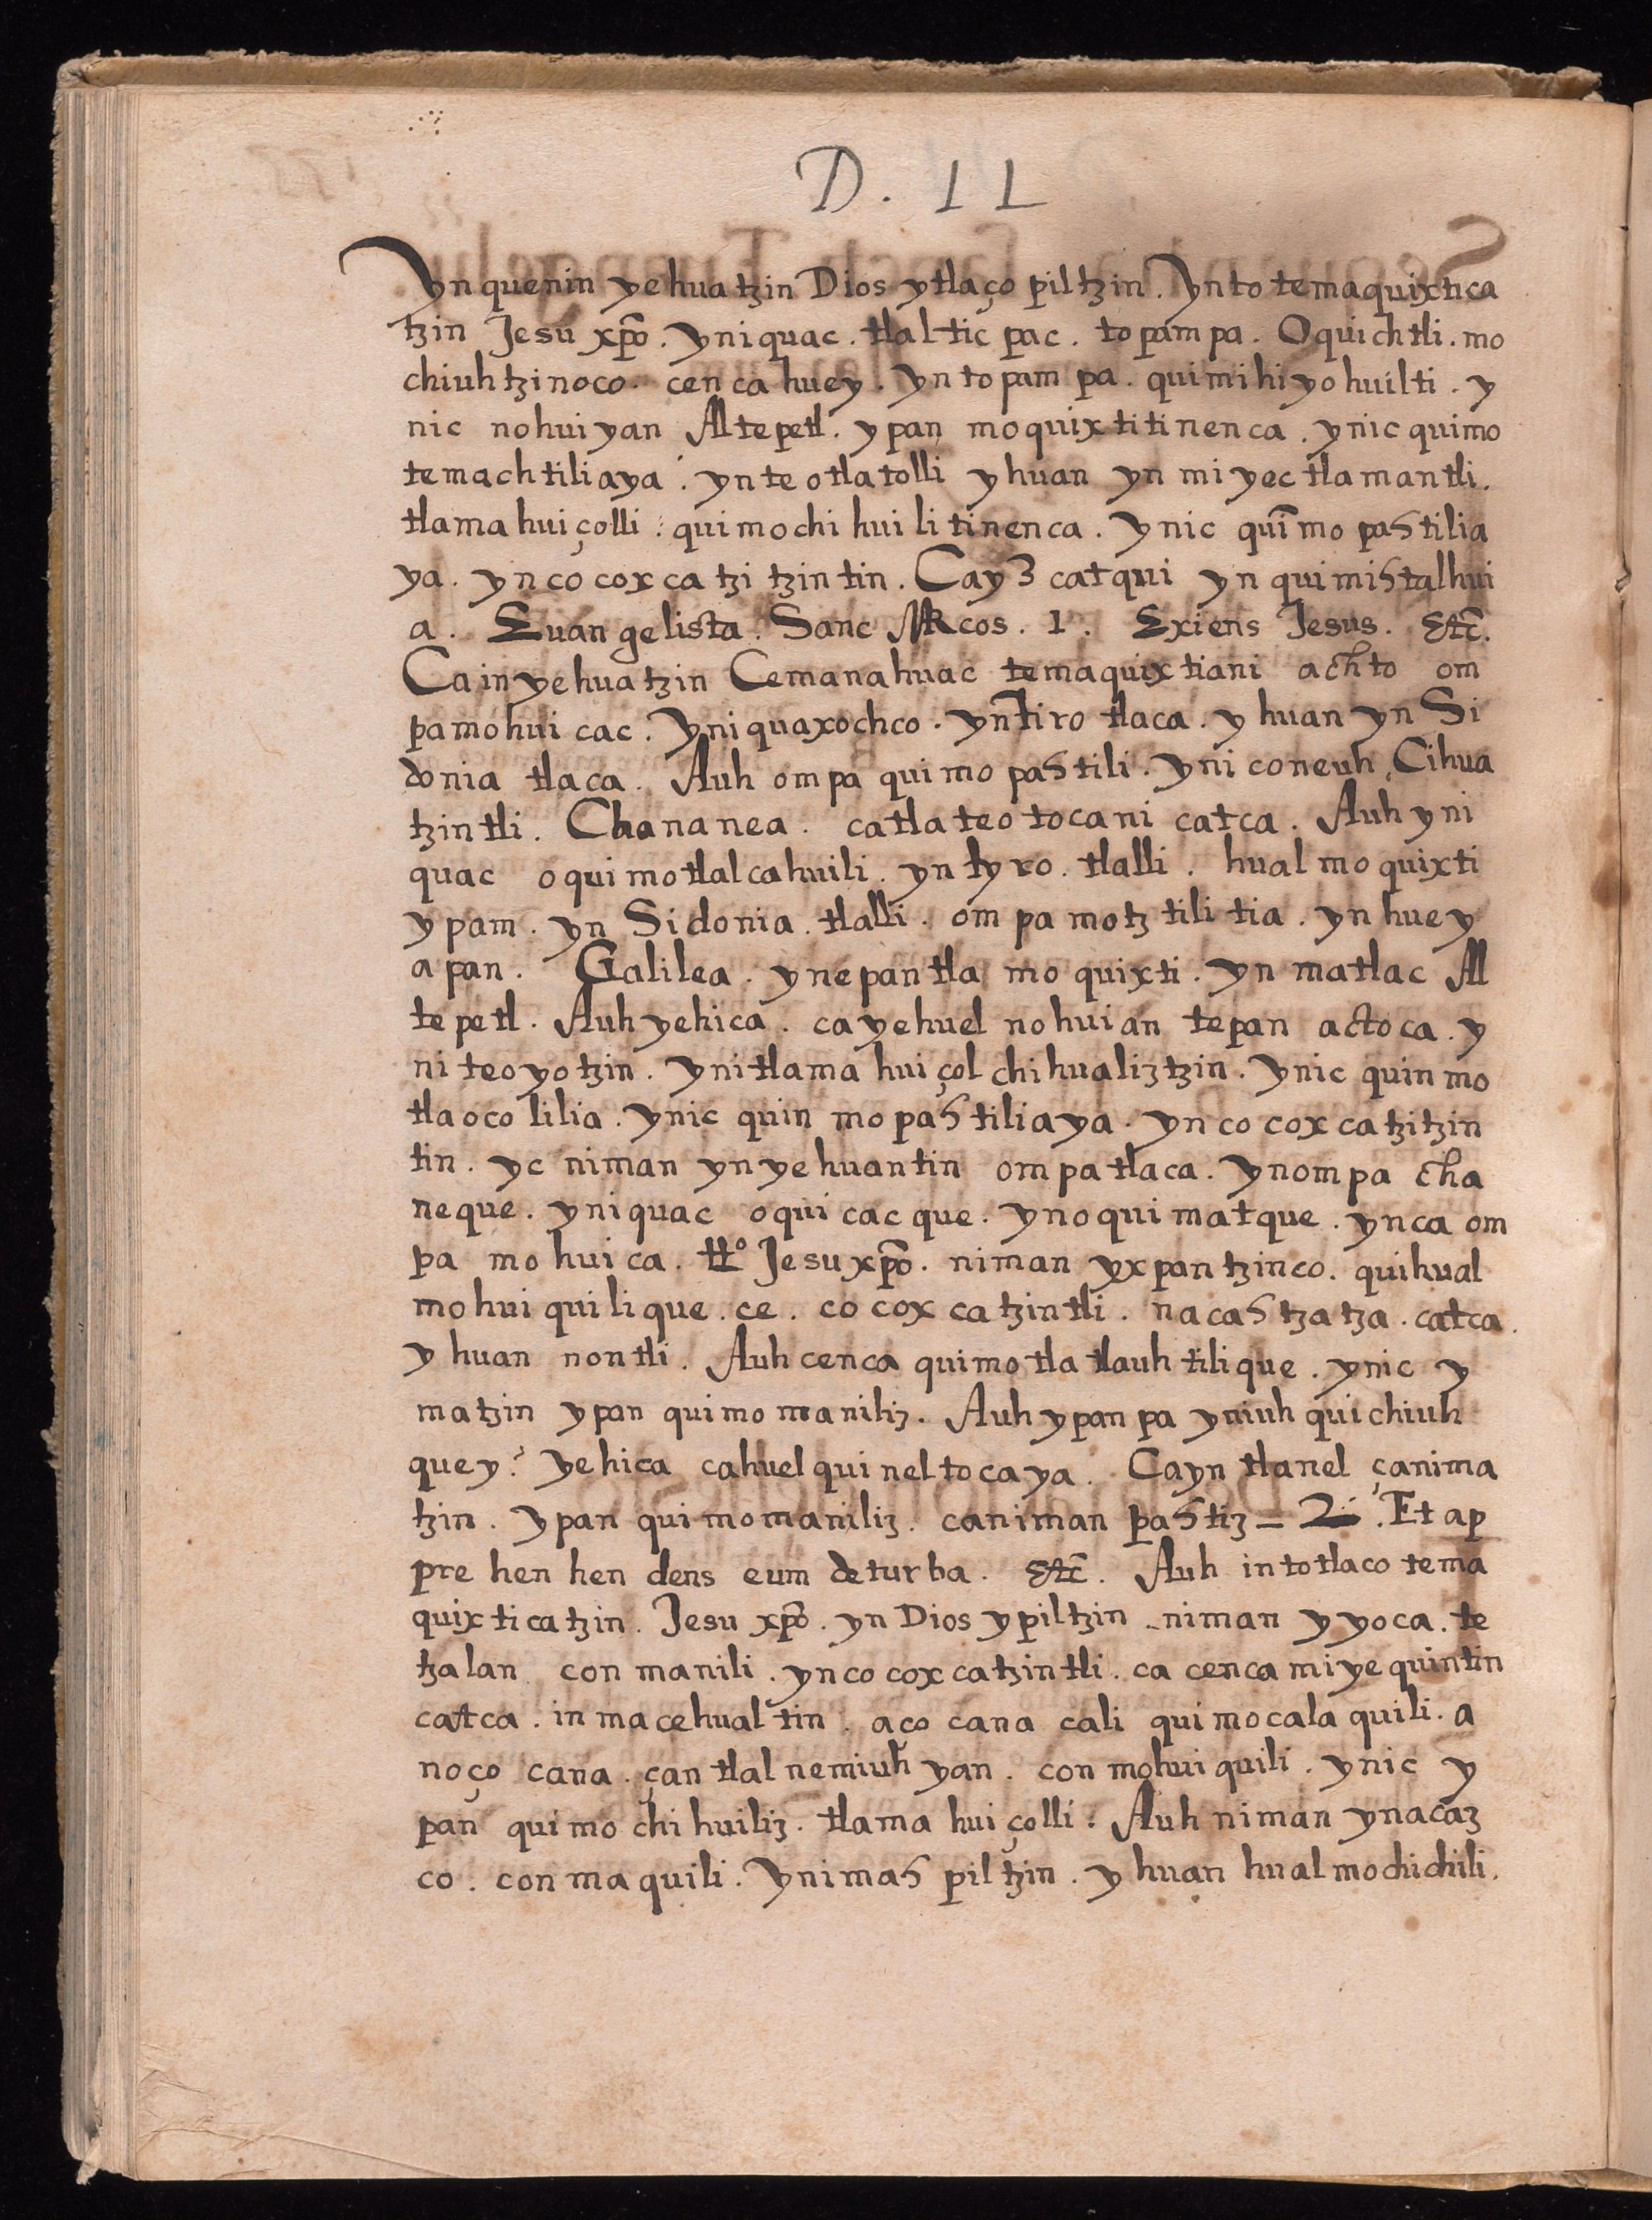 D. 11
Yn quenin yehuatzin Dios ytlaço piltzin. Ynto temaquixtica
tzin Jesu xp̄o. yniquac. tlaltic pac. topampa. Oquichtli. mo
chiuhtzinoco. cenca huey. yn topam pa. quimihiyohuilti. y
nic nohuiyan Altepetl. ypan moquixtitinenca. ynic quimo
temachtiliaya. ynteotlatolli yhuan yn miyec tlamantli.
tlamahuiçolli: quimochihuilitinenca. ynic quīmo pastilia
ya. ynco coxcatzitzintin. Cay3 catqui yn quimistalhui
a. Euangelista. Sanc MRcos. 1. Exiens Jesus. Etc̄.
Cainyehuatzin Cemanahuac temaquixtiani achto om
pamohuicac. Yniquaxochco. ynTiro tlaca. yhuan yn Si
donia tlaca. Auh ompa quimo pastili. yni coneuh, Cihua
tzintli. Chananea. catlateotocani catca. Auh yni
quac oquimotlalcahuili. yn tyro. tlalli. hualmoquixti
ypam. yn Sidonia. tlalli. ompa motztilitia. yn huey
apan. Galilea. ynepantla moquixti. yn matlac Al
tepetl. Auh yehica. cayehuel nohuian tepan actoca. y
niteoyotzin. ynitlamahuiçolchihualiztzin. ynic quinmo
tlaocolilia. ynic quin mopastiliaya. ynco coxcatzitzin
tin. yc niman ynyehuantin ompatlaca. ynompa cha
neque. yniquac oquicacque. ynoquimatque. ynca om
pa mohuica. ttº Jesuxp̄o. niman yxpantzinco. quihual
mohuiquilique. ce. cocoxcatzintli. nacastzatza. catca.
yhuan nontli. Auhcenca quimotlatlauhtilique. ynic y
matzin ypan quimomaniliz. Auhypanpa yniuh quichiuh
quey? yehica cahuelquineltocaya. Cayn tlanel çanima
tzin. ypan quimomaniliz. caniman pastiz = 2. Et ap
pre hen hen dens eum deturba. Etc̄. Auh intotlaco tema
quixticatzin. Jesu xp̄o. yn Dios ypiltzin. niman yyoca. te
tzalan conmanili. ynco coxcatzintli. ca cenca miyequintin
catca. inmacehualtin. aço cana cali quimocalaquili. a
noço cana. çan tlalnemiuhyan. conmohuiquili. ynic y
pan quimochihuiliz. tlamahuiçolli: Auh niman ynacaz
co. conmaquili. ynimas piltzin. yhuan hualmochichili.